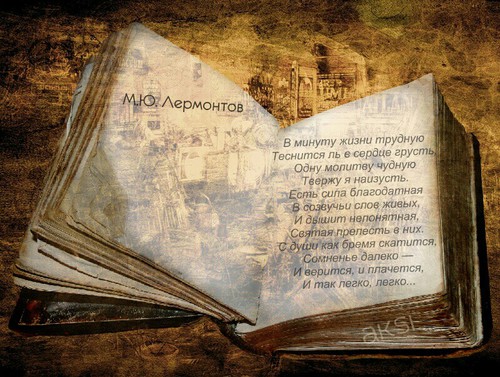 М.Ю. Лермонтов
В минуту жизни трудную
Теснится ль в сердце грусть,
Одну молитву чудную
Твержу я наизусть.
Есть сила благодатная
В созвучьи слов живых,
И дышит непонятная,
Святая прелесть в них.
С души как бремя скатится,
Сомненье далеко —
И верится, и плачется,
И так легко, легко...
aksi